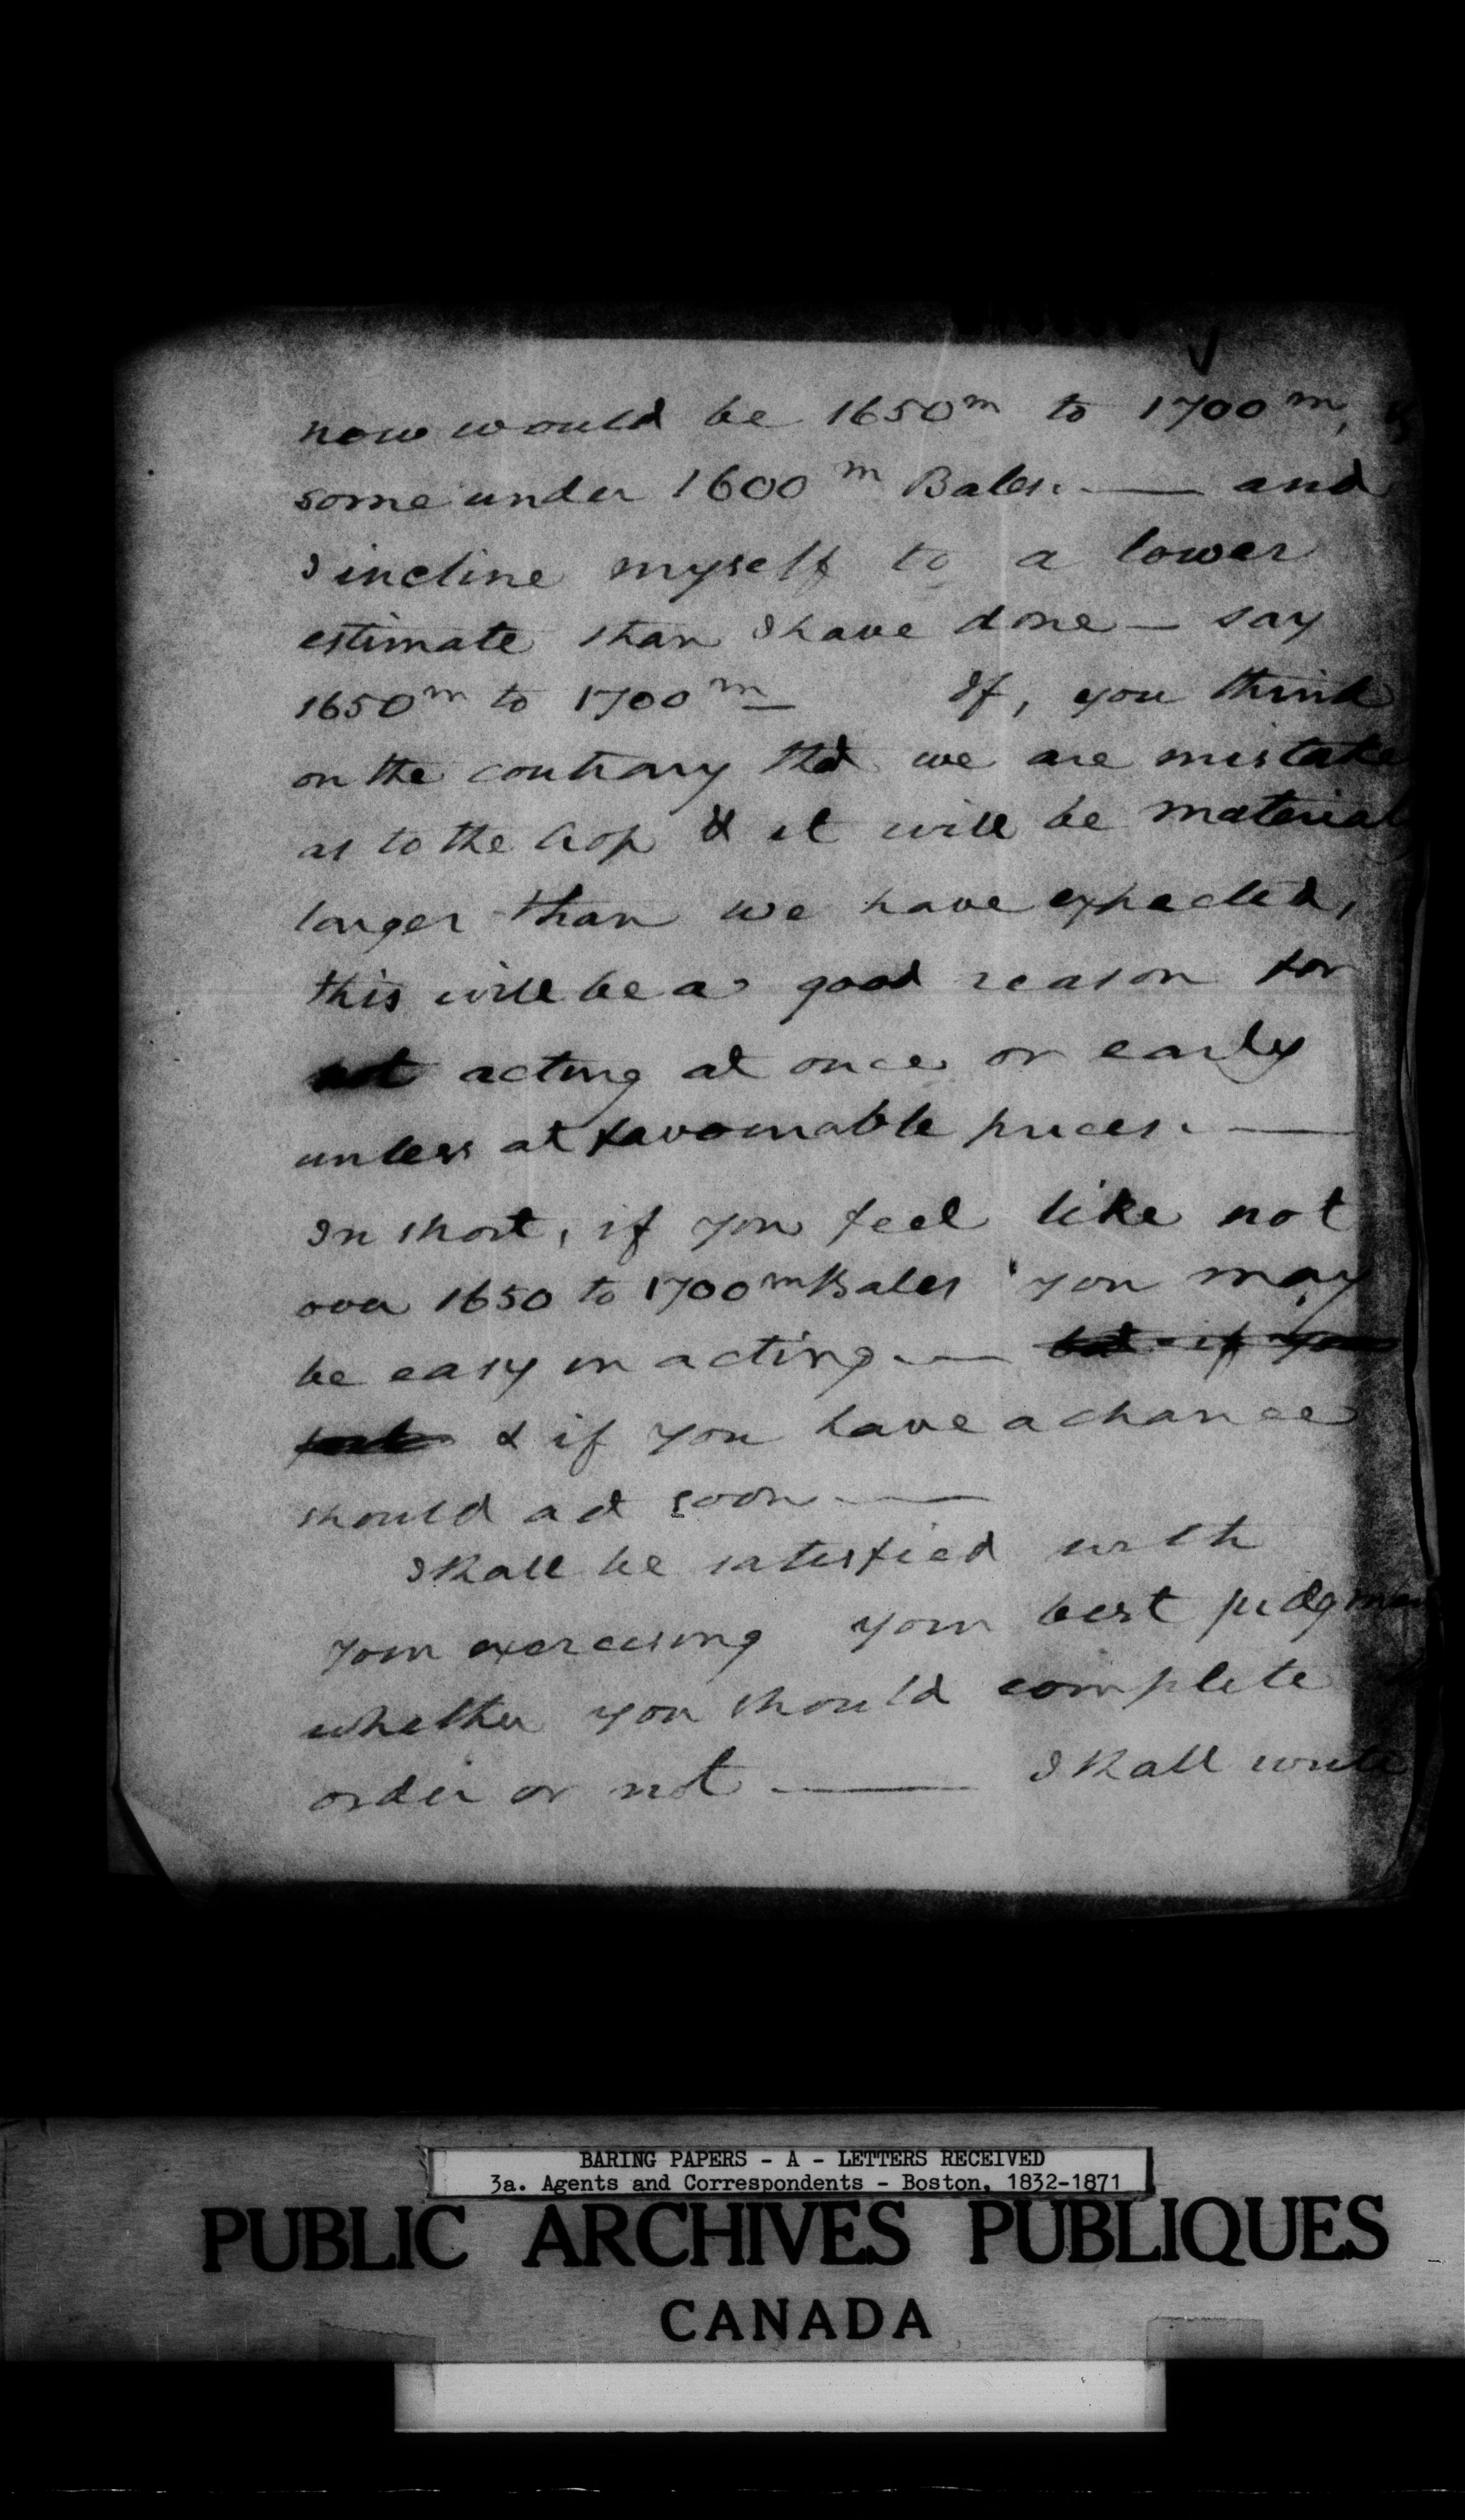 now would be 1650m to 1700m,
some under 1600m Bales. — and
I incline myself to a lower
estimate than I have done — say
1650m to 1700m — If, you think
on the contrary tht we are mistake
as to the Crop & it will be material
larger than we have expected,
this will be a good reason for
not acting at once or early
unless at favourable prices. —
In short, if you feel like not
over 1650 to 1700m Bales you may
be easy in acting. — but if you
& if you have a chance
should act soon. —
I shall be satisfied with
your exercising your best judgmen
whether you should complete
order or not. — I shall write
BARING PAPERS - A - LETTERS RECEIVED
3a. Agents and Correspondents - Boston, 1832-1871
PUBLIC ARCHIVES PUBLIQUES
CANADA